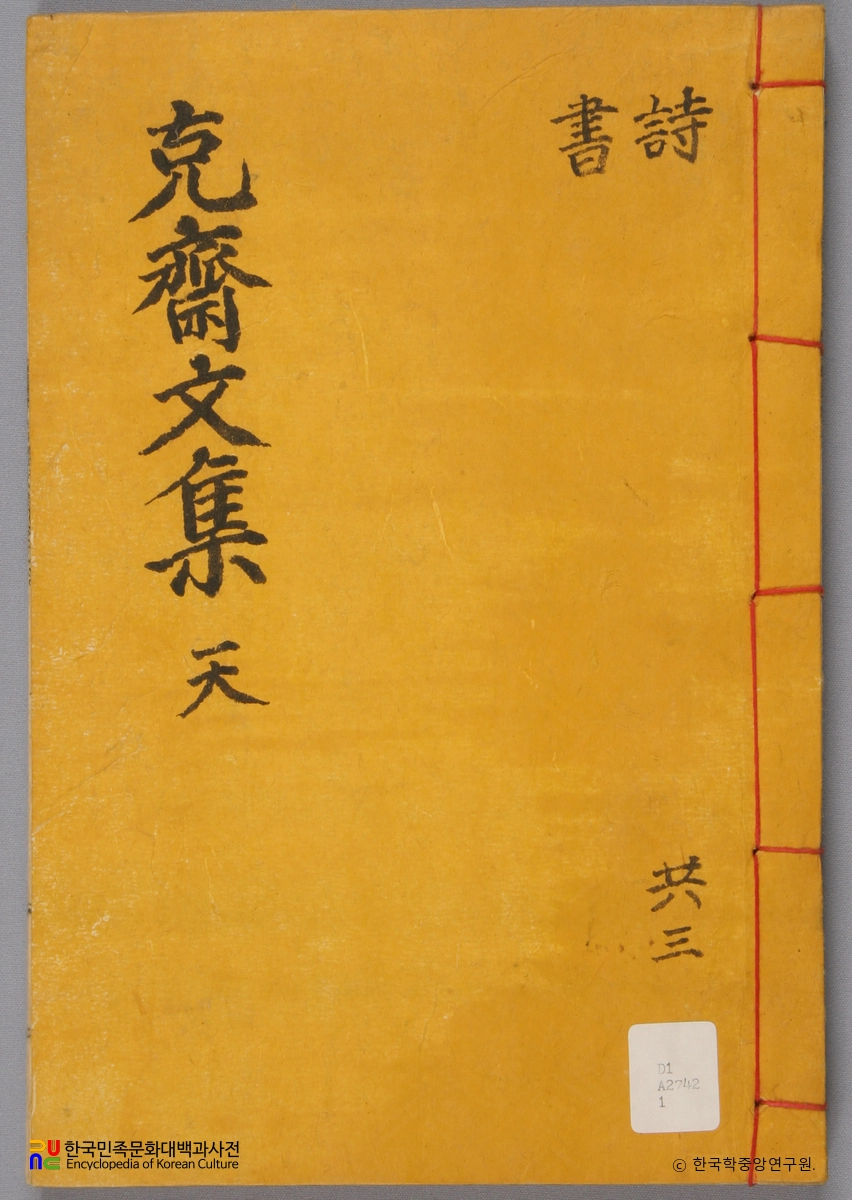 詩
書
克齋文集 天
共三
D1
A2742
1
한국민족문화대백과사전
Encyclopedia of Korean Culture
© 한국학중앙연구원.